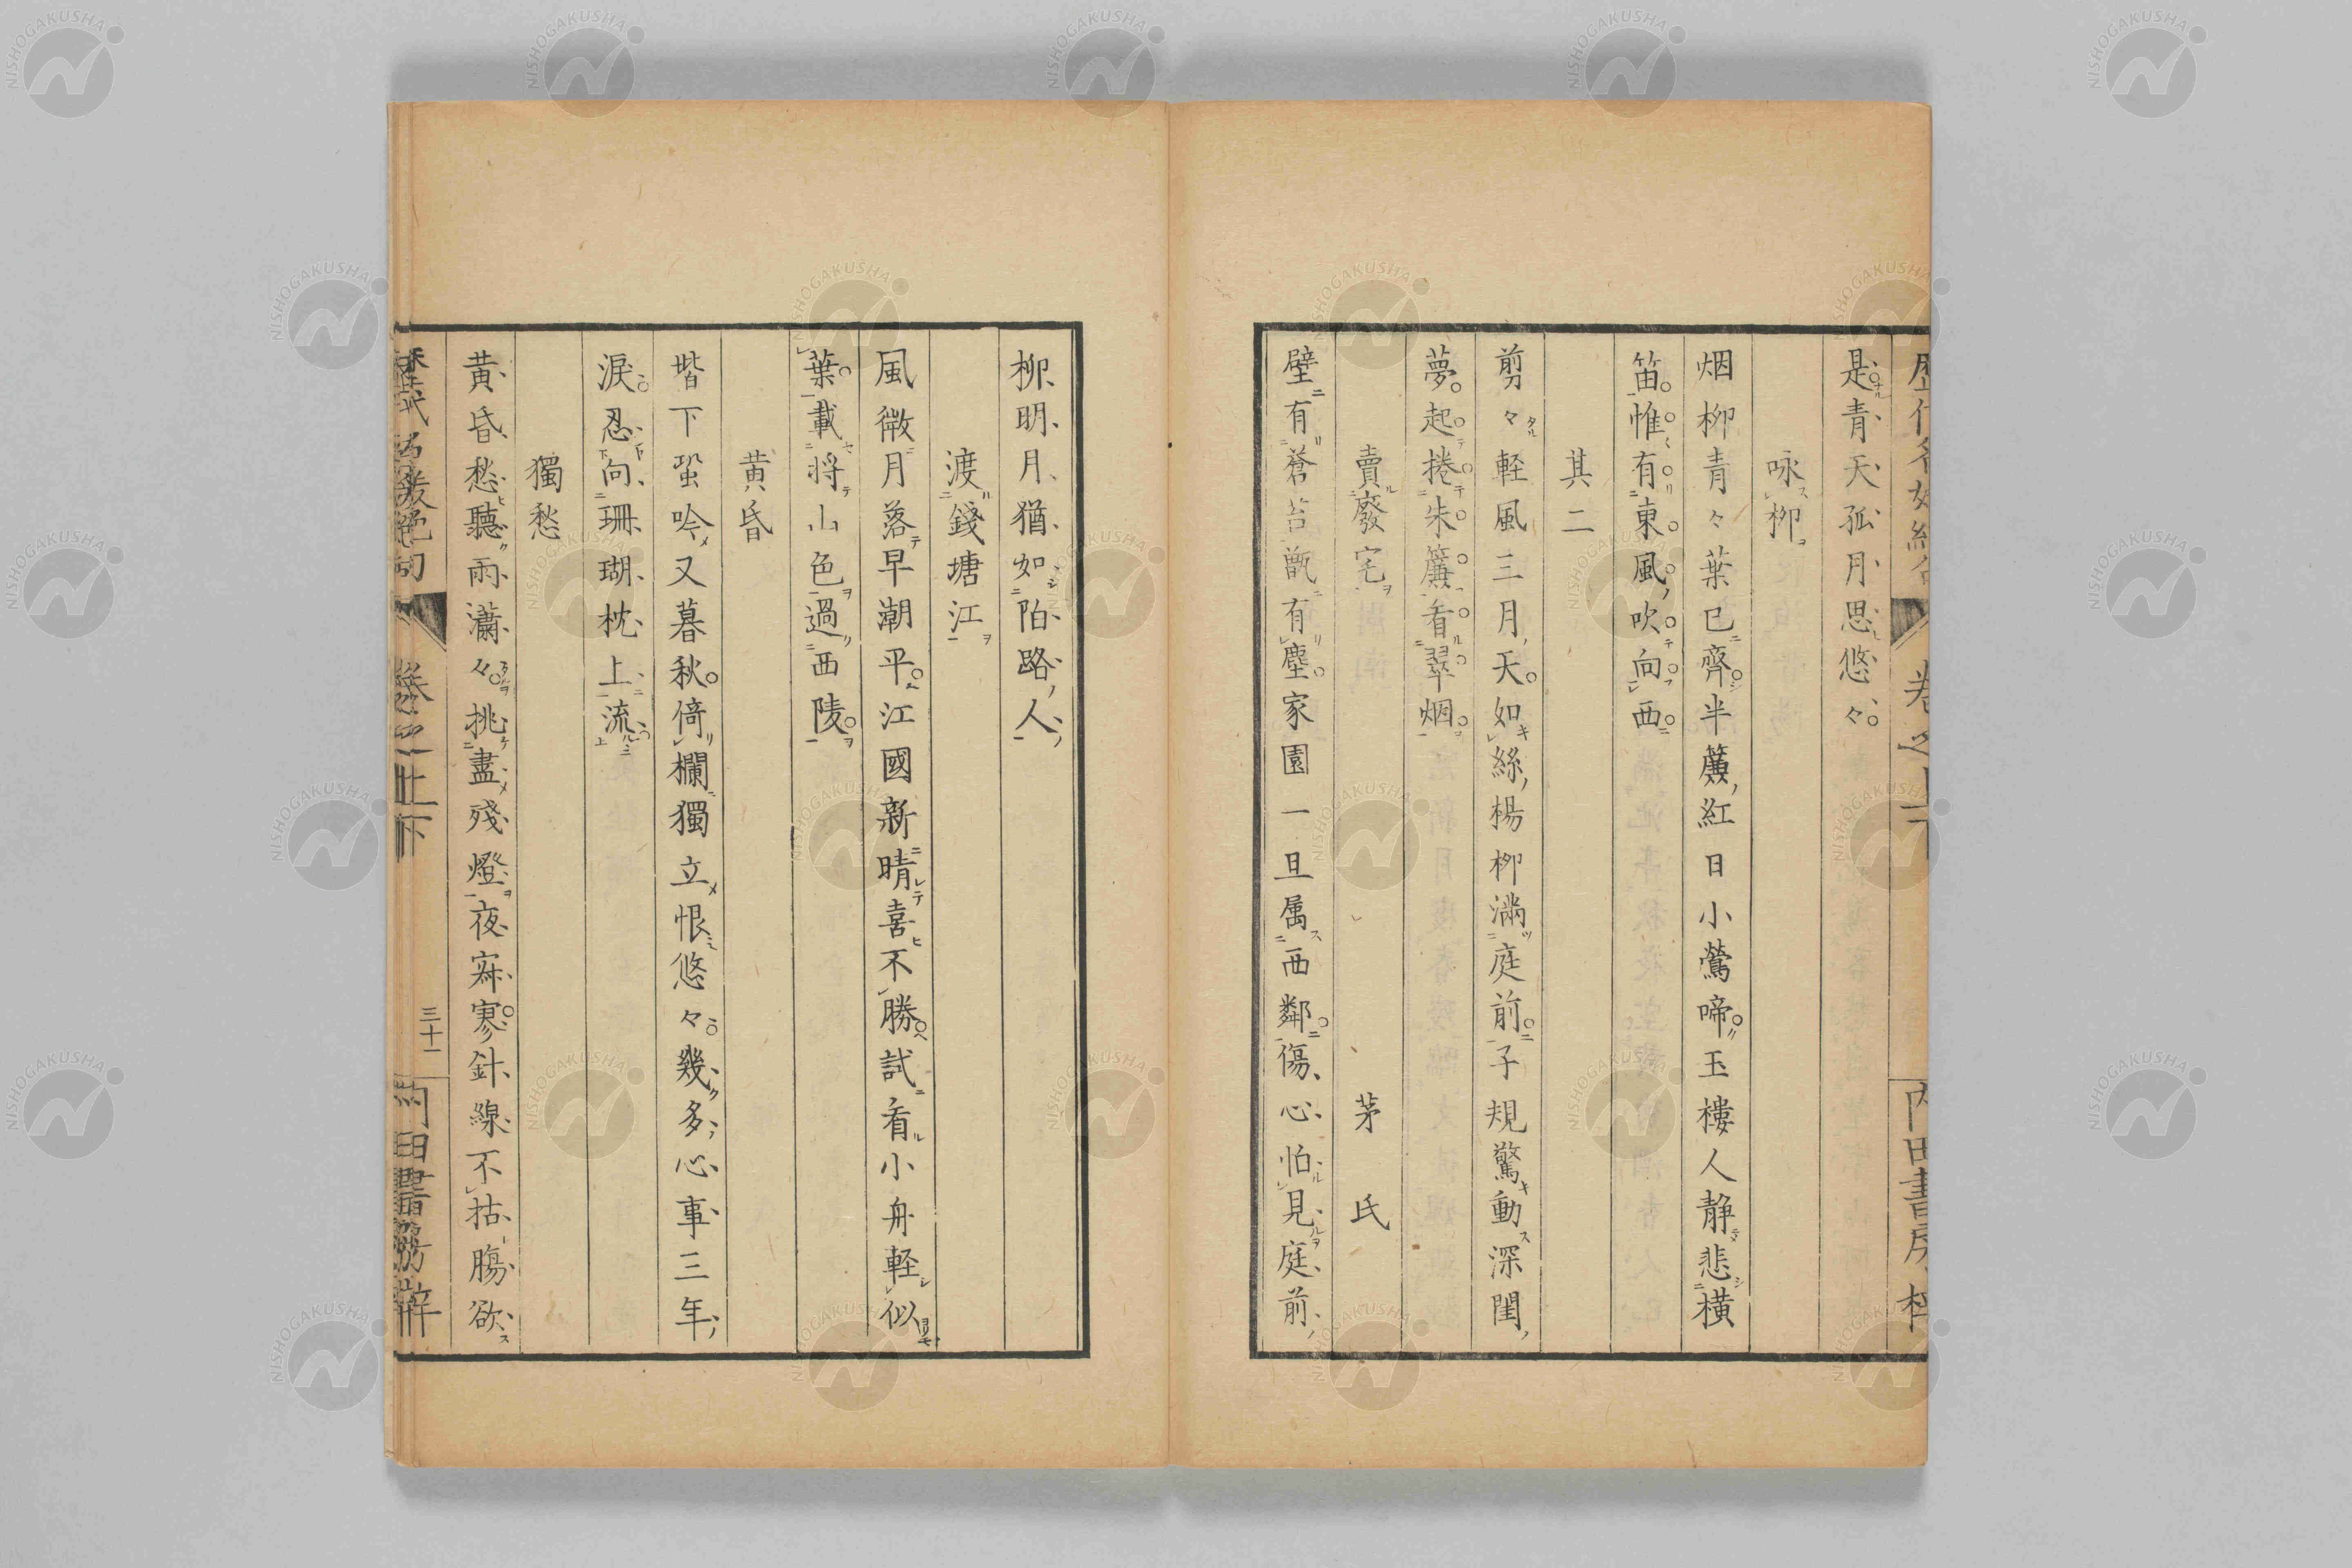 是青天孤月思悠々
咏柳
烟柳青々葉已齊半簾紅日小鶯啼玉樓人靜悲橫
笛惟有東風吹向西
其二
剪々軽風三月天如絲楊柳滿庭前子規驚動深閨
夢起捲朱簾看翠烟
賣廢宅 茅氏
壁有蒼苔甑有塵家園一旦属西鄰傷心怕見庭前
柳明月猶如陌路人
渡錢塘江
風微月落早潮平江國新晴喜不勝試看小舟軽似
葉載将山色過西陵
黄昏
堦下蛩吟又暮秋倚欄獨立恨悠々幾多心事三年
淚忍向珊瑚枕上流
獨愁
黄昏愁聽雨瀟々挑盡殘燈夜寂寒針線不拈膓欲
三十一
NISHOGAKUSHA